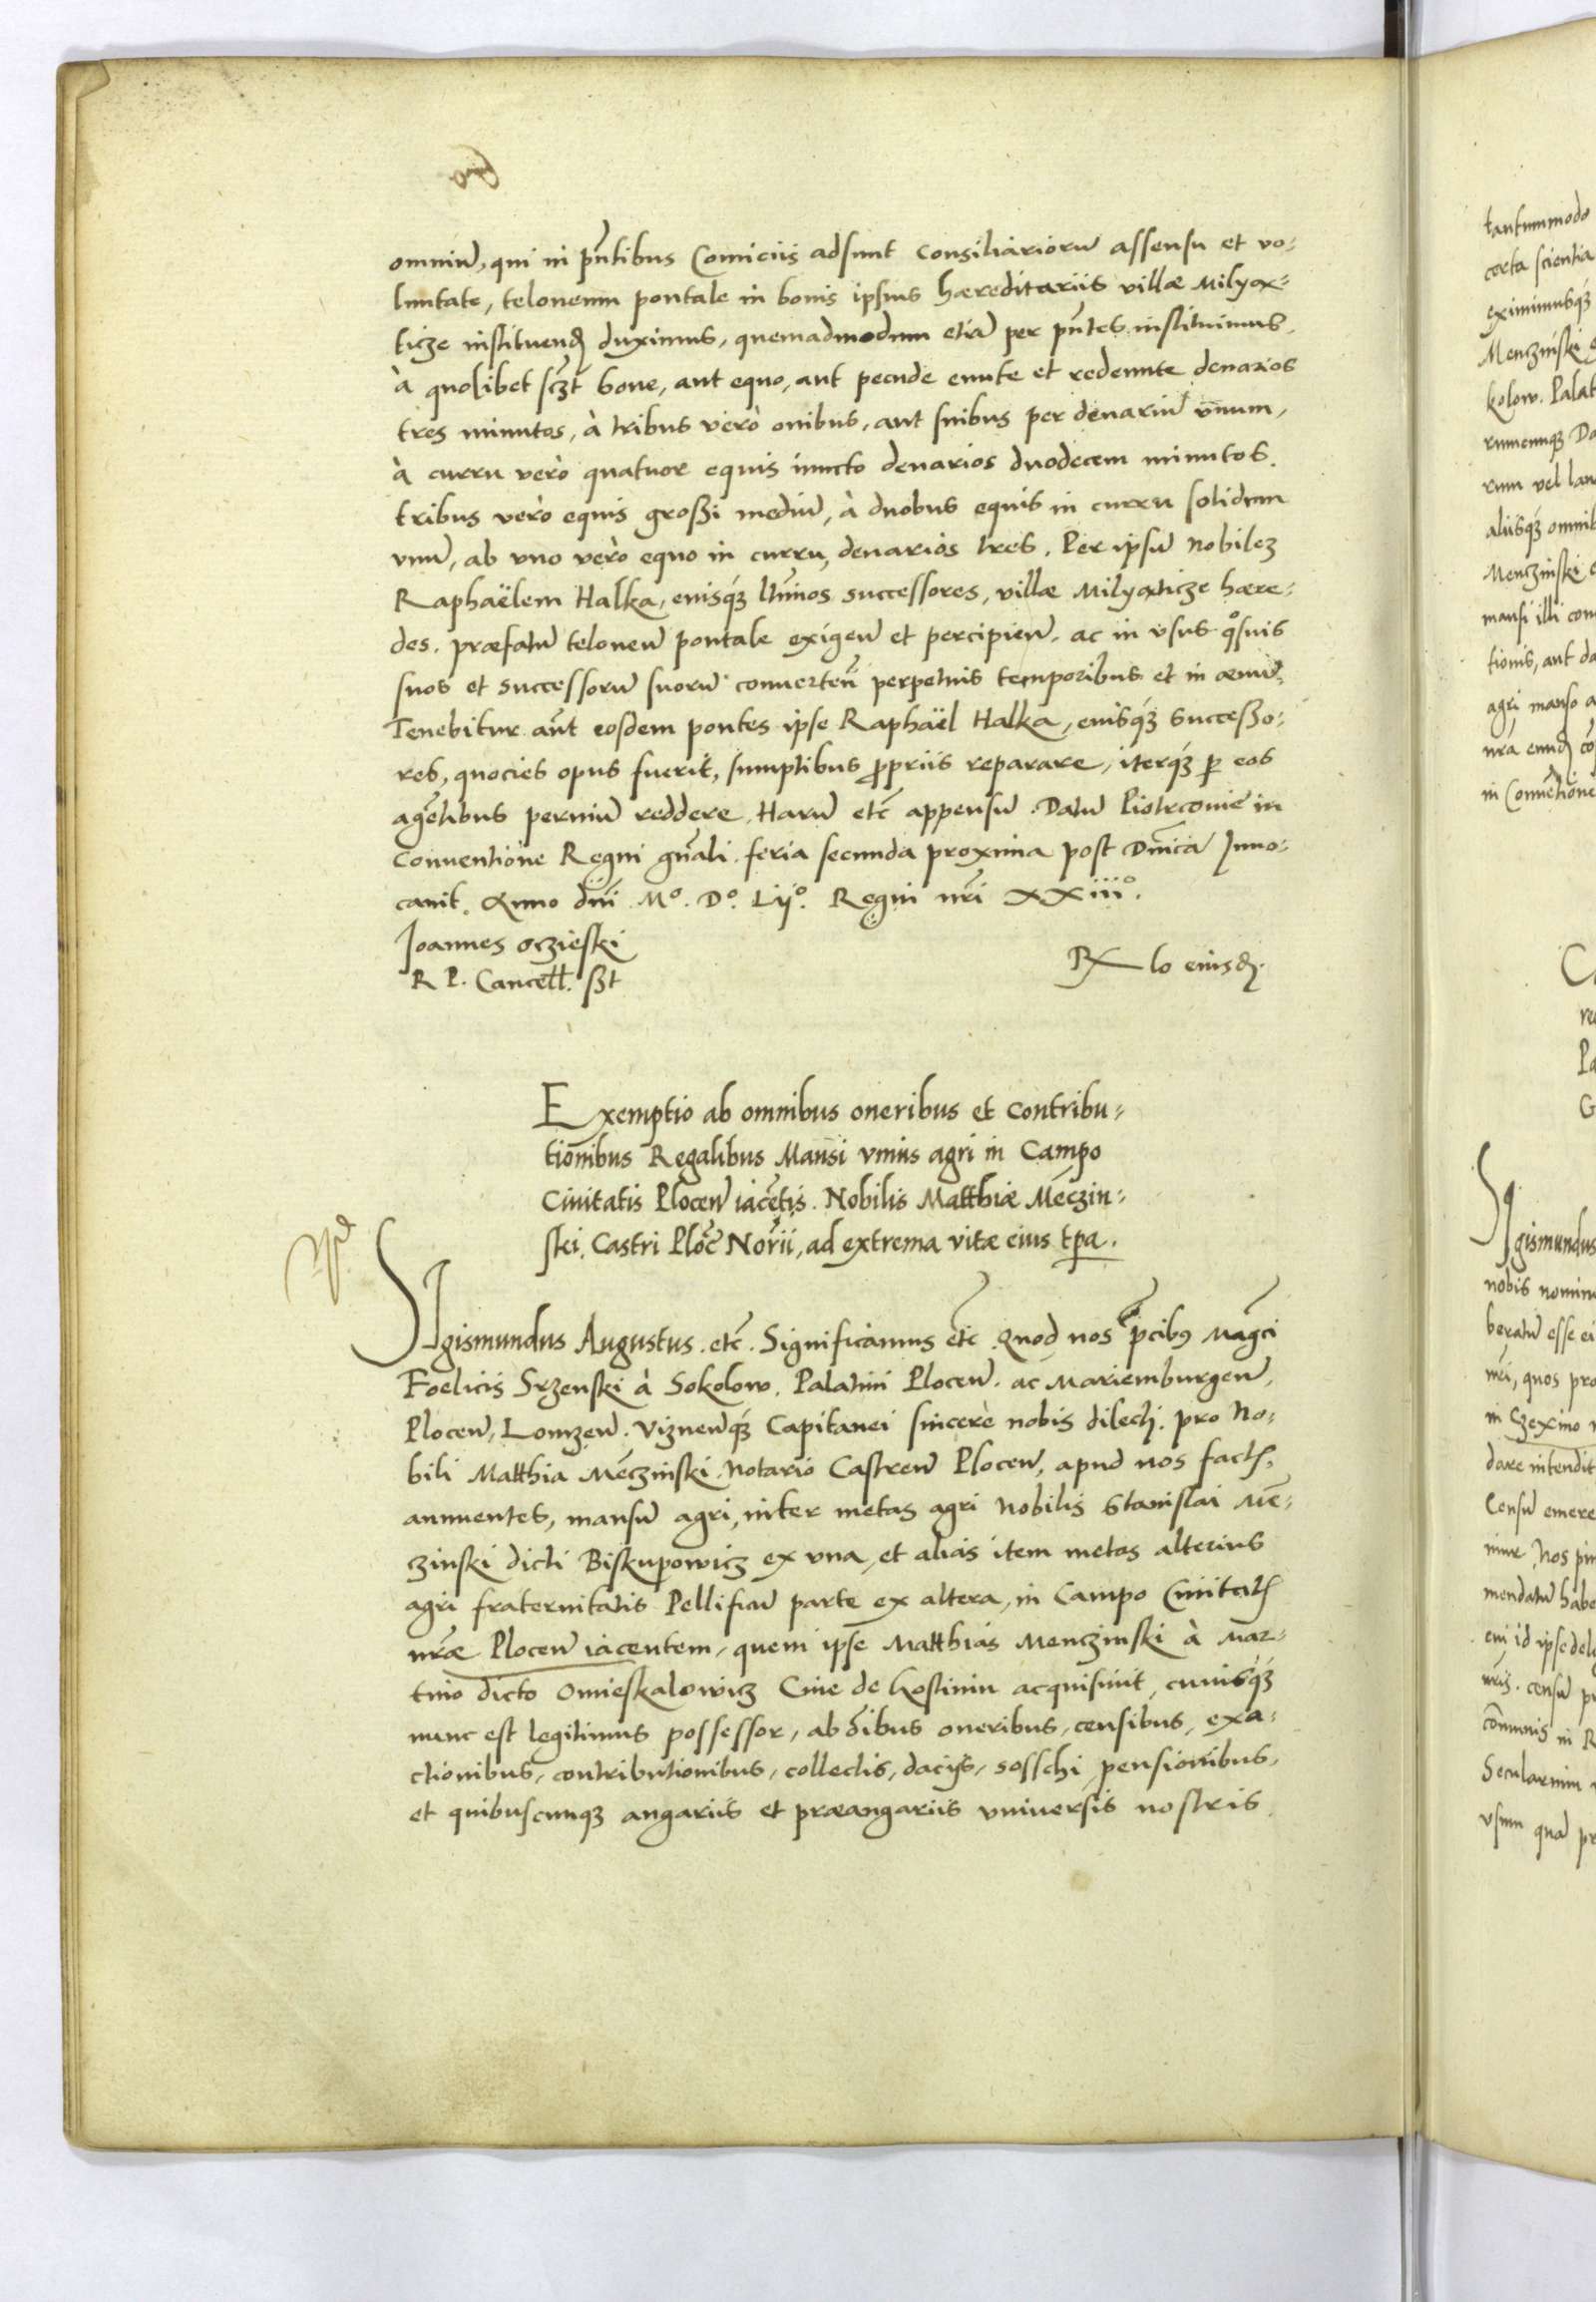 omniũ, qui in pñtibus Comiciis adsunt consiliariorũ assensu et vo-
luntate, teloneum pontale in bonis ipsius hæreditariis villæ Milyax-
ticze instituend duximus, quemadmodum etiã per pñtes instituimus.
à quolibet sczt boue, aut equo, aut pecude eunte et redeunte denarios
tres minutos, à tribus verò ouibus, aut suibus per denariũ vnum,
à curru verò quatuor equis iuncto denarios duodecem minutos.
tribus verò equis großi mediũ, à duobus equis in curru solidum
vnũ, ab vno verò equo in curru, denarios tres. Per ipsũ Nobilez
Raphaëlem Halka, eiusqz ltimos successores, villæ Milyaxticze hære-
des. præfatũ teloneũ pontale exigeñ et percipieñ. ac in vsus qosuis
suos et successorũ suorũ conuerteñ perpetuis temporibus et in æuũ.
Tenebitur aũt eosdem pontes ipse Raphaël Halka, eiusqz succeßo-
res, quocies opus fuerit, sumptibus propriis reparare, iterqz per eos
agẽtibus peruiũ reddere. Harũ etc appensũ. Datũ Piotrcouie in
Conuentione Regni gñali. feria secunda proxima post Dnĩca Inuo-
cauit. Anno dñi Mo. Do. Lijo. Regni nri xxiiio.
Joannes Oczieski
R P. Cancell. ßt
Rx lo eiusd.
Exemptio ab omnibus oneribus et contribu-
tionibus Regalibus Mansi vnius agri in Campo
Ciuitatis Plocen iacẽtis. Nobilis Matthiæ Mẽczin-
ski. Castri Ploc Norii, ad extrema vitæ eius tpa.
Sigismundus Augustus. etc. Significamus etc Quod nos pcibus Magci
Foelicis Srzenski à Sokolow. Palatini Plocen. ac Mariemburgen,
Plocen, Lomzen. Viznenqz Capitanei sincerè nobis dilecti. pro No-
bili Matthia Mẽczinski. Notario Castren Plocen, apud nos factis.
annuentes, mansũ agri, inter metas agri Nobilis Stanislai Mẽ-
czinski dicti Biskupowicz ex vna, et alias item metas alterius
agri fraternitatis Pellificũ parte ex altera, in Campo Ciuitatis
nræ Plocen iacentem, quem ipse Matthias Menczinski à Mar-
tino dicto Omieskalowicz Ciue de Gostinin acquisiuit, cuiusqz
nunc est legitimus possessor, ab oĩbus oneribus, censibus, exa-
ctionibus, contributionibus, collectis, dacijs, sosschi pensionibus,
et quibuscunqz angariis et præangariis vniuersis nostris